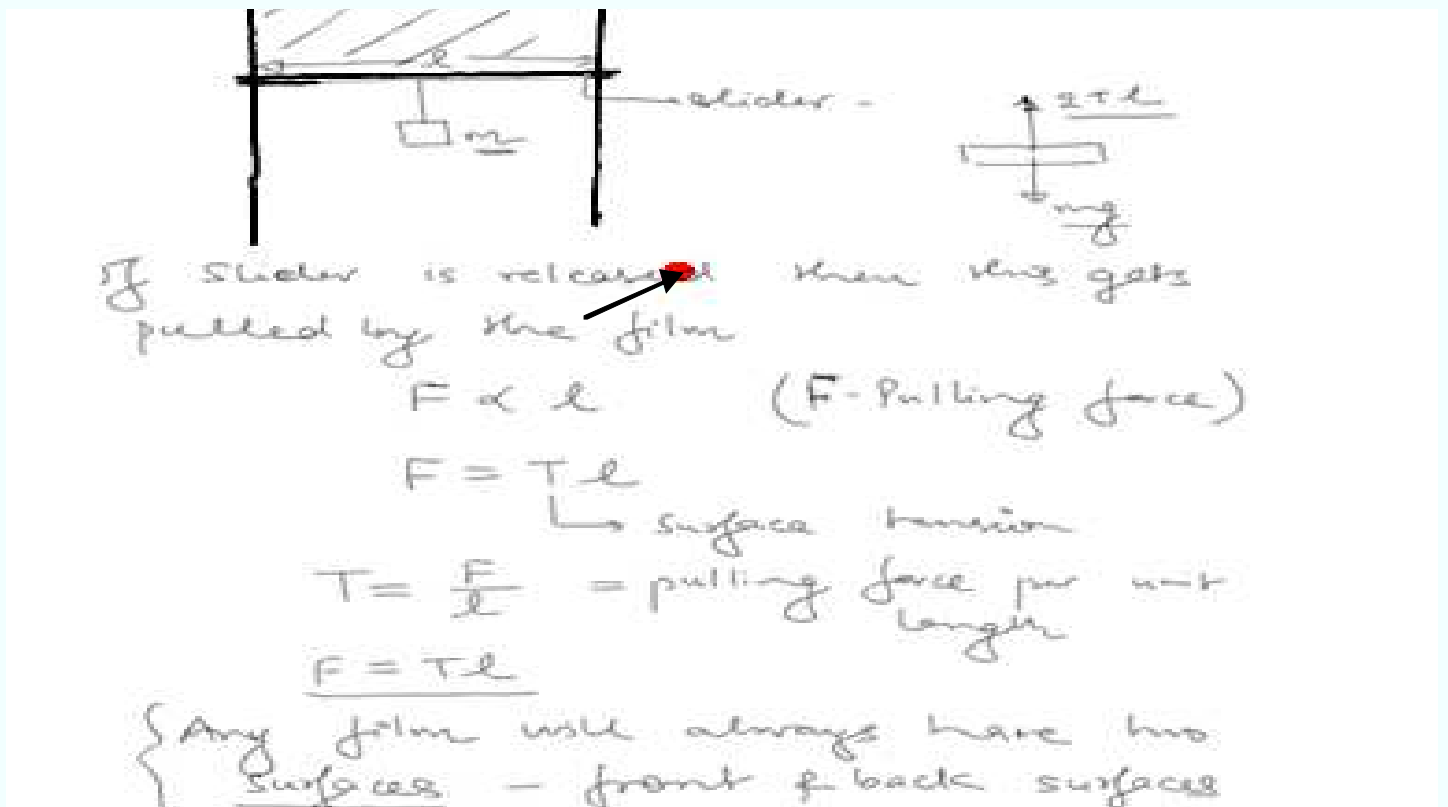 l
slider -
2Tl
m
mg
If slider is released then this gets
pulled by the film
F ∝ l (F - Pulling force)
F = Tl
surface tension
T = F/l = pulling force per unit
length
F = Tl
{ Any film will always have two
surfaces - front & back surfaces